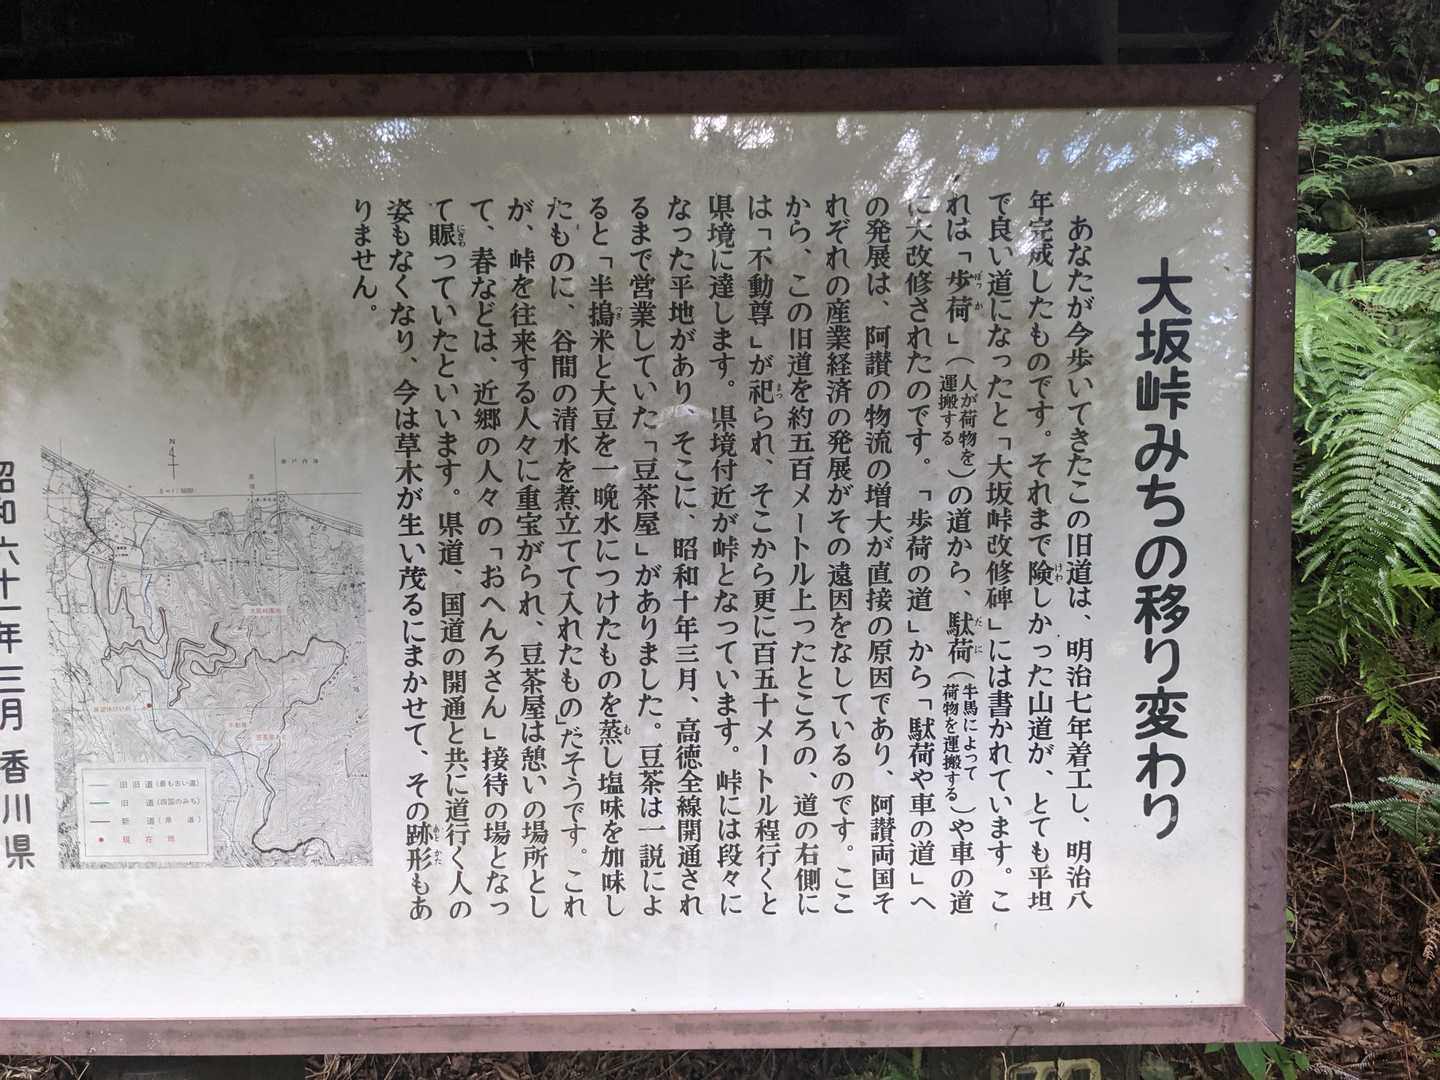 大坂峠みちの移り変わり
あなたが今歩いてきたこの旧道は、明治七年着工し、明治八
年完成したものです。それまで険しかった山道が、とても平坦
で良い道になったと「大坂峠改修碑」には書かれています。こ
れは「歩荷」（人が荷物を運搬する）の道から、駄荷（牛馬によって荷物を運搬する）や車の道
に大改修されたのです。「歩荷の道」から「駄荷や車の道」へ
の発展は、阿讃の物流の増大が直接の原因であり、阿讃両国そ
れぞれの産業経済の発展がその遠因をなしているのです。ここ
から、この旧道を約五百メートル上ったところの、道の右側に
は「不動尊」が祀られ、そこから更に百五十メートル程行くと
県境に達します。県境付近が峠となっています。峠には段々に
なった平地があり、そこに、昭和十年三月、高徳全線開通され
るまで営業していた「豆茶屋」がありました。豆茶は一説によ
ると「半搗米と大豆を一晩水につけたものを蒸し塩味を加味し
たものに、谷間の清水を煮立てて入れたもの」だそうです。これ
が、峠を往来する人々に重宝がられ、豆茶屋は憩いの場所とし
て、春などは、近郷の人々の「おへんろさん」接待の場となっ
て賑っていたといいます。県道、国道の開通と共に道行く人の
姿もなくなり、今は草木が生い茂るにまかせて、その跡形もあ
りません。
N
瀬戸内海
旧旧道（最も古い道）
旧道（四国のみち）
新道（県道）
現在地
昭和六十一年三月 香川県